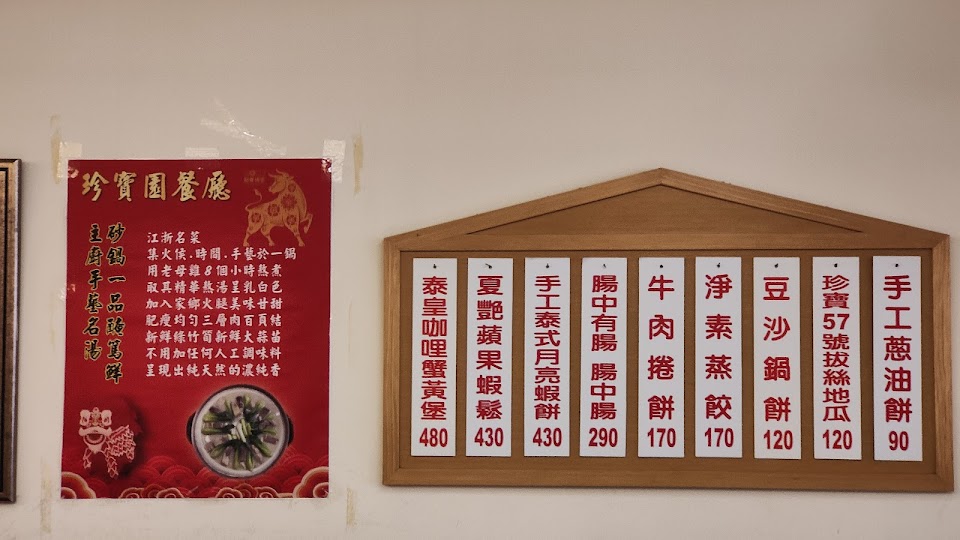 珍寶園餐廳
砂鍋一品醃篤鮮
主廚手藝名湯
江浙名菜
集火侯.時間.手藝於一鍋
用老母雞8個小時熬煮
取其精華熬湯呈乳白色
加入家鄉火腿美味甘甜
肥瘦均勻三層肉百頁結
新鮮綠竹筍新鮮大蒜苗
不用加任何人工調味料
呈現出純天然的濃純香
手工蔥油餅 90
珍寶57號拔絲地瓜 120
豆沙鍋餅 120
淨素蒸餃 170
牛肉捲餅 170
腸中有腸 腸中腸 290
手工泰式月亮蝦餅 430
夏艷蘋果蝦鬆 430
泰皇咖哩蟹黃堡 480